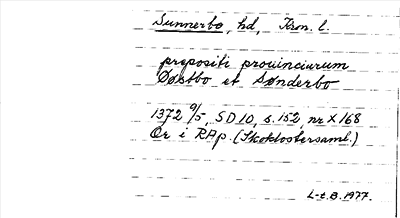 Sunnerbo, hd, Kron. l.
prepositi prouinciarum
Østbo et Sønderbo
1372 9/5, SD 10, s. 152, nr X 168
Or i RAp (Skoklostersaml.)
L-t. B. 1977.